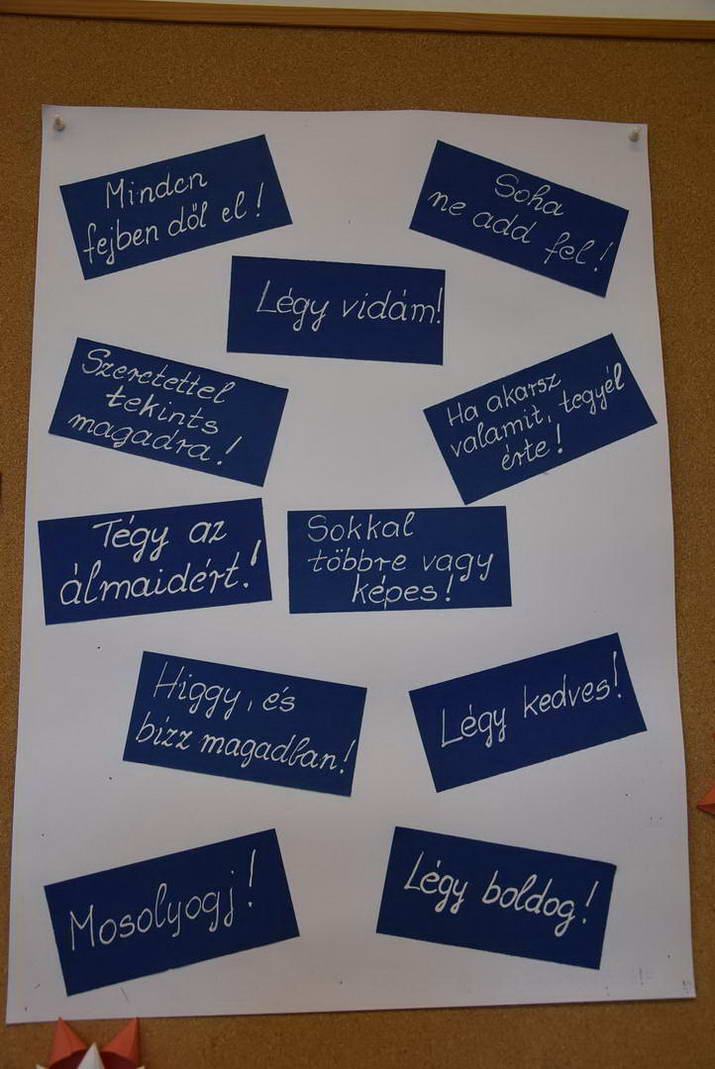 Minden
fejben dől el!
Soha
ne add fel!
Légy vidám!
Szeretettel
tekints
magadra!
Ha akarsz
valamit, tegyél
érte!
Tégy az
álmaidért!
Sokkal
többre vagy
képes!
Higgy, és
bízz magadban!
Légy kedves!
Mosolyogj!
Légy boldog!